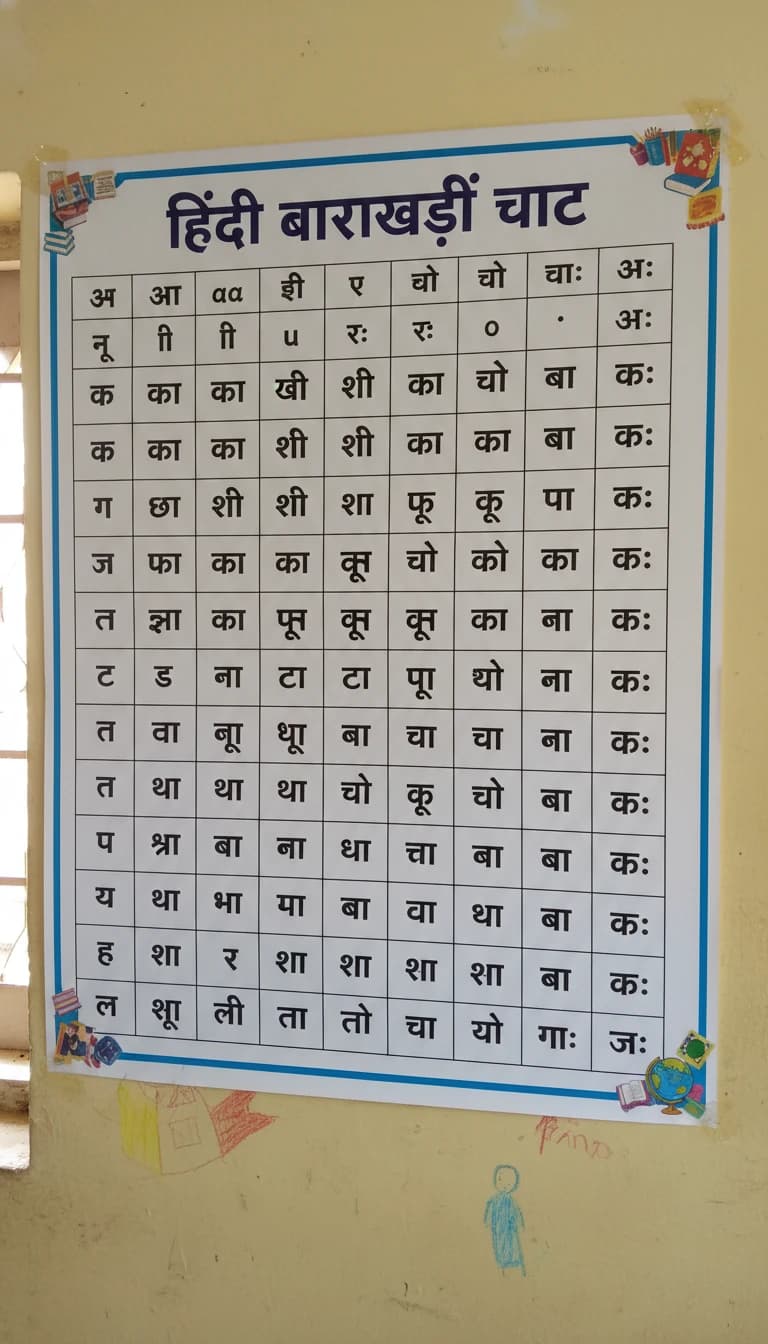 हिंदी बाराखड़ीं चाट
अ आ aa ईी ए चो चो चाः अः
नू ी ी u रः रः o · अः
क का का खी शी का चो बा कः
क का का शी शी का का बा कः
ग छा शी शी शा फू कू पा कः
ज फा का का चो को का कः
त झा का का ना कः
ट ड ना टा टा पूा थो ना कः
त वा नूा धूा बा चा चा ना कः
त था था था चो कू चो बा कः
प श्रा बा ना धा त्ता बा बा कः
य था भा पा बा वा था बा कः
ह शा र शा शा शा शा बा कः
ल शूा ली ता तो चा यो गाः जः